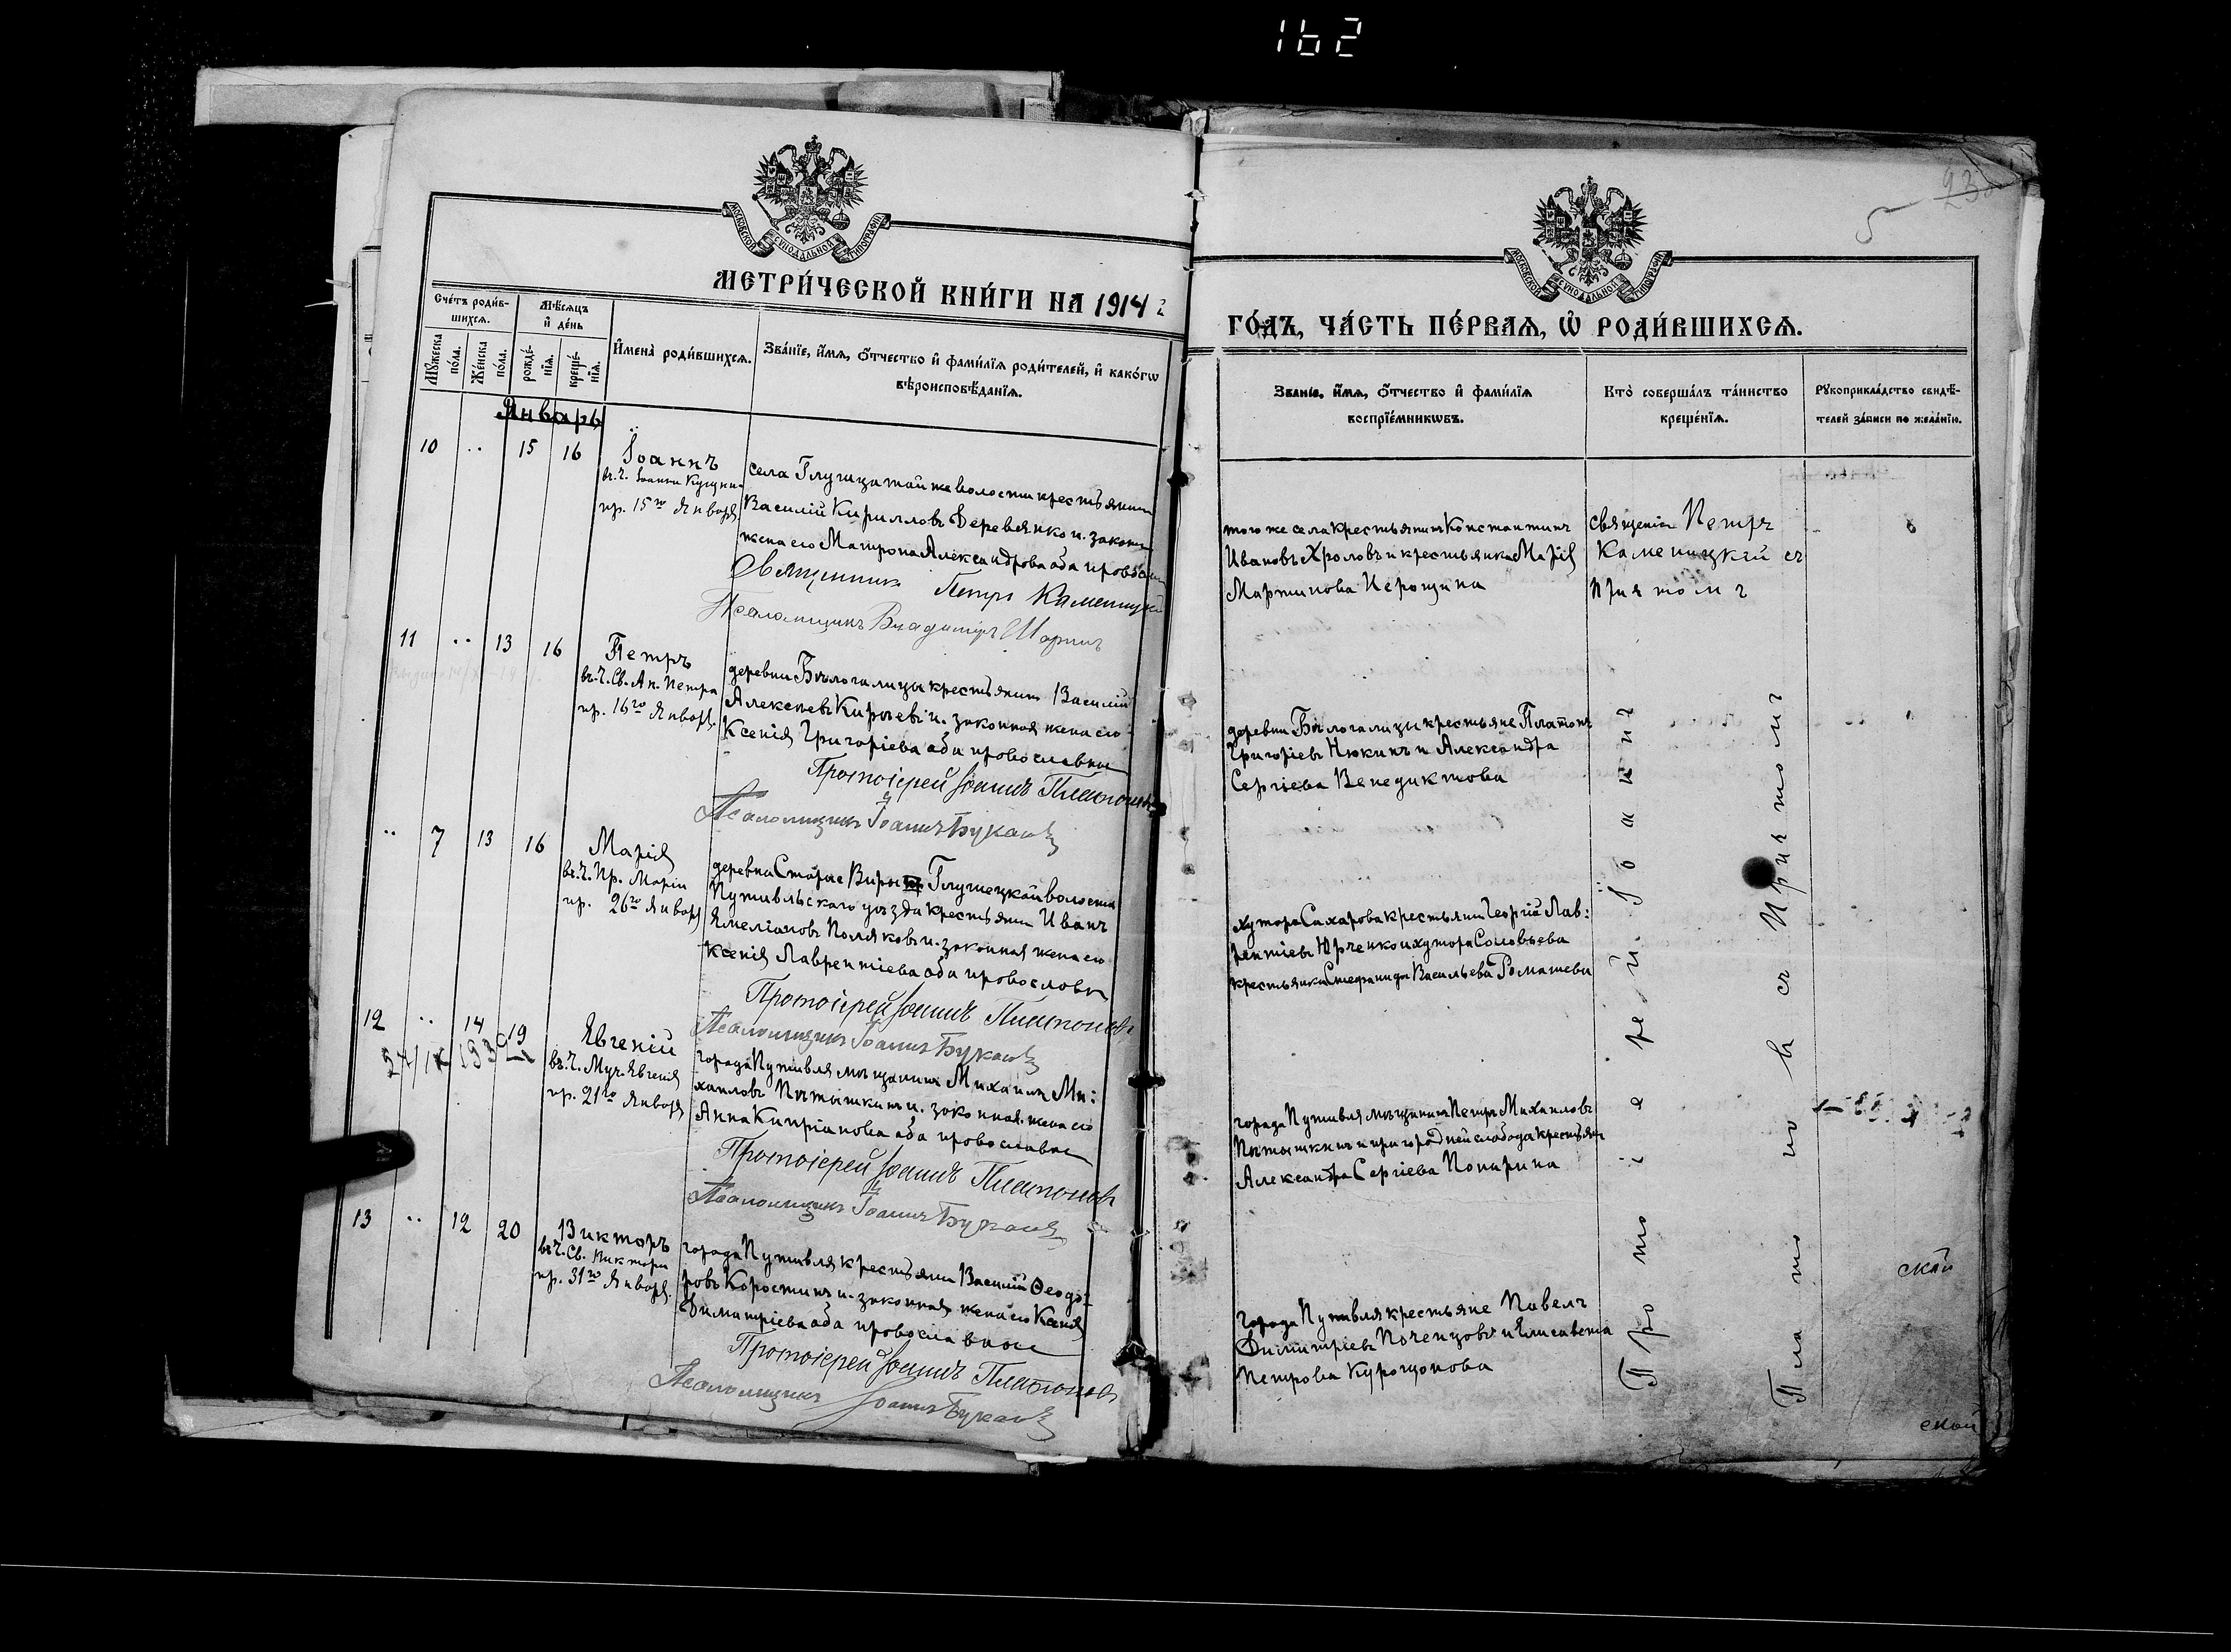 162
23
5
МОСКОВСКОЙ СѴНОДАЛЬНОЙ ТИПОГРАФІИ
МОСКОВСКОЙ СѴНОДАЛЬНОЙ ТИПОГРАФІИ
МЕТРИ́ЧЕСКОЙ КНИ́ГИ НА 1914
ГО́ДЪ, ЧА́СТЬ ПЕ́РВАѦ, Ѡ҆ РОДИ́ВШИХСѦ.
Сче́тъ роди́в-
шихсѧ.
Мѣ́сѧцъ
и҆ де́нь
Мꙋ́жеска
по́ла.
Же́нска
по́ла.
рожде́-
нїѧ.
креще́-
нїѧ.
И҆мена̀ роди́вшихсѧ.
Зва́нїе, и҆́мѧ, ѻ҆́тчество и҆ фами́лїѧ роди́телей, и҆ како́гѡ
вѣроисповѣ́данїѧ.
Зва́нїе, и҆́мѧ, ѻ҆́тчество и҆ фами́лїѧ
воспрїе́мникѡвъ.
Кто̀ соверша́лъ та́инство
креще́нїѧ.
Рꙋкоприкла́дство свидѣ́-
телей за́писи по жела́нїю.
Январь
10 .. 15 16
Іоаннъ
въ ч. Іоанна Кущни-
пр. 15го Января
села Глушца той же волости крестьянин
Василій Кирилловъ Деревянко и законн
жена его Матрона Александрова оба правосл
Священникъ Петръ Каменицкій
Псаломщикъ Владиміръ
того же села крестьянин Константинъ
Ивановъ Хроловъ и крестьянка Марія
Мартинова 
священ Петръ
Каменицкій съ
причтомъ
11 .. 13 16
Петръ
въ ч. Св. Ап. Петра
пр. 16го Января
деревни Бѣлогалицы крестьянин Василій
Алексеевъ Кирѣевъ и законная жена его
Ксенія Григоріева оба православные
Протоіерей Іоаннъ Платоновъ
Псаломщикъ Іоаннъ Букасовъ
деревни Бѣлогалицы крестьяне Платонъ
Григоріевъ Нюкинъ и Александра
Сергіева Венедиктова
.. 7 13 16
Марія
въ ч. Пр. Маріи
пр. 26го Января
деревни Старые Виры Глушецкой волости
Путивльскаго уѣзда крестьянин Иванъ
Емеліановъ Поляковъ и законная жена его
Ксенія Лаврентіева оба православн
Протоіерей Іоаннъ Платоновъ
Псаломщикъ Іоаннъ Букасовъ
хутора Сахарова крестьянин Георгій Лав:
рентіевъ Юрченко и хутора Соловьева
крестьянка Стефанида Васильева Ромашева
12 .. 14 19
Евгеній
въ ч. Муч. Евгенія
пр. 21го Января
города Путивля мѣщанинъ Михаилъ Ми:
хаиловъ Пятышкинъ и законная жена его
Анна Кипріанова оба православные
Протоіерей Іоаннъ Платоновъ
Псаломщикъ Іоаннъ Букасовъ
города Путивля мѣщанинъ Петръ Михаиловъ
Пятышкинъ и пригородней слобода крестьян
Александра Сергіева Понарина
13 .. 12 20
Викторъ
въ ч. Св. Виктора
пр. 31го Января
города Путивля крестьянин Василій Ѳеодо:
ровъ Коростинъ и законная жена его Ксенія
Димитріева оба православные
Протоіерей Іоаннъ Платоновъ
Псаломщикъ Іоаннъ Букасовъ
города Путивля крестьяне Павелъ
Димитріевъ Поченцовъ и Елисавета
Петрова Курощопова
Протоіерей Іоаннъ
Платоновъ съ Причтомъ
ской
ской